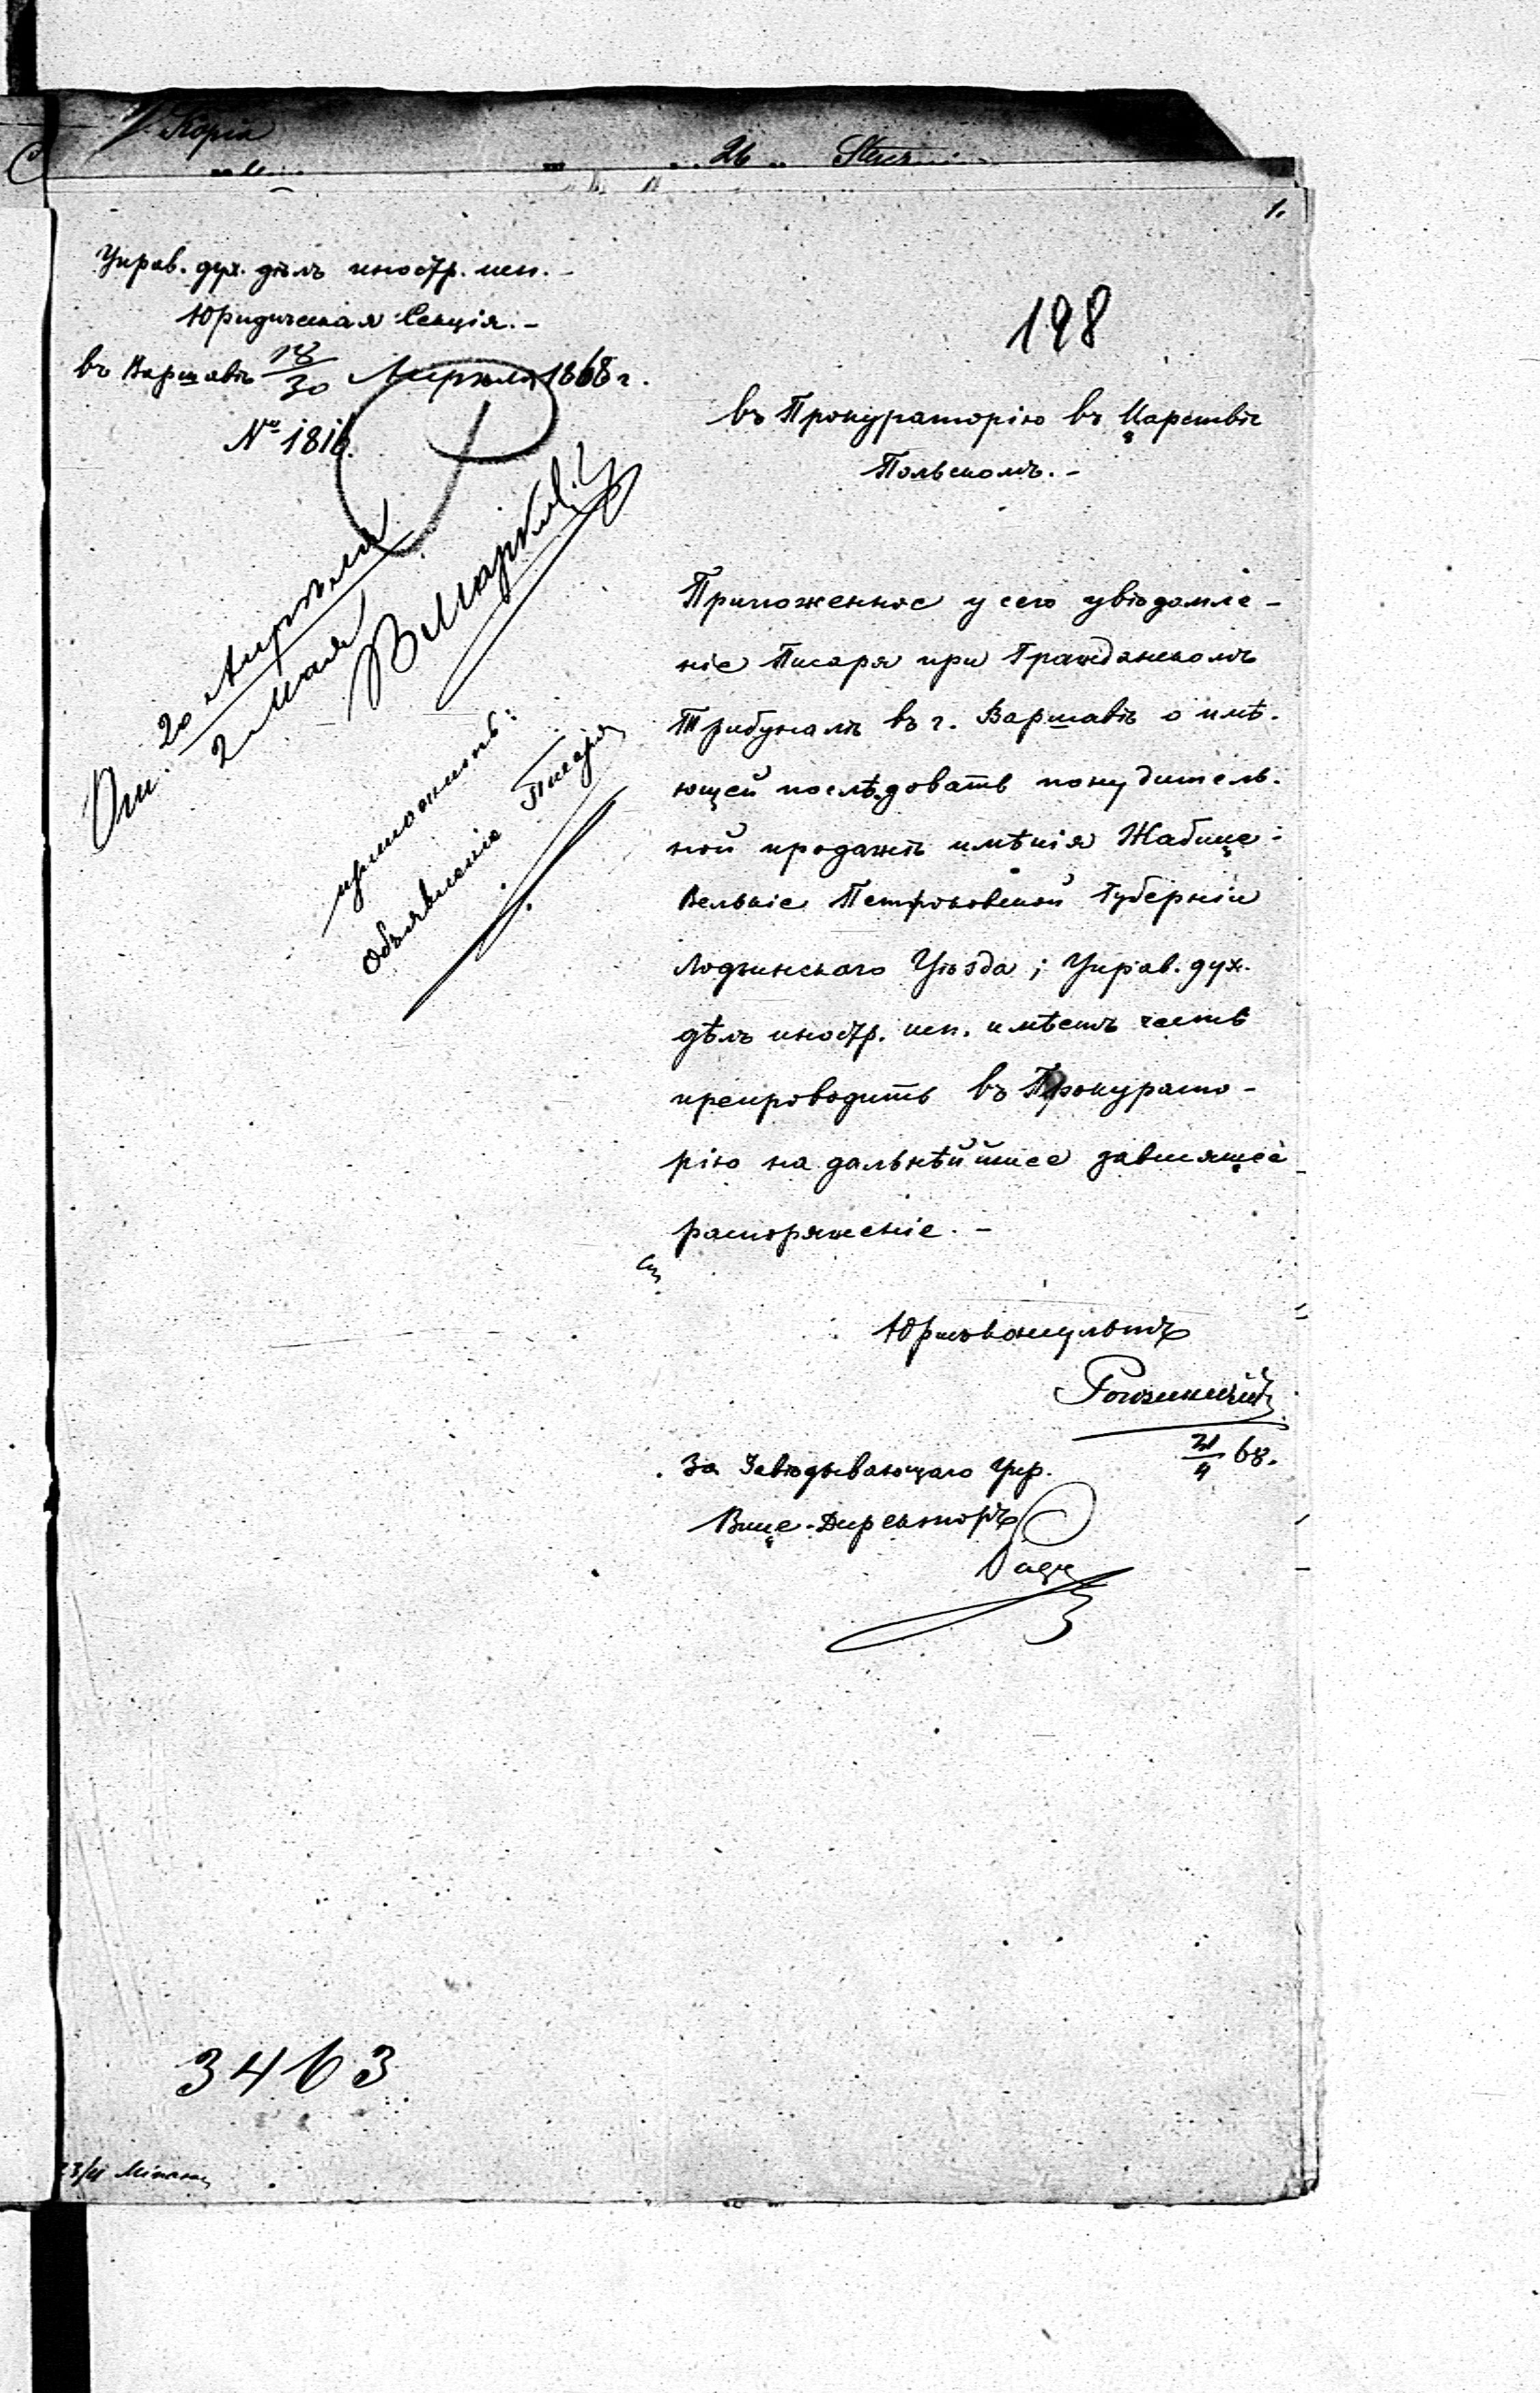 Kopia
26
1.
Управ. дух. дѣлъ иностр. исп. -
Юридическая Секція. -
въ Варшавѣ 18/30 Апрѣля 1868 г.
№ 1816.
198
въ Прокураторію въ Царствѣ
Польскомъ. -
20 Апрѣля
2 Мая
приложить:
объявленіе Писаря
Приложенное у сего увѣдомле-
ніе Писаря при Гражданскомъ
Трибуналѣ въ г. Варшавѣ о имѣ-
ющей послѣдовать понудитель-
ной продажѣ имѣнія Жабице-
Велькіе Петроковской Губерніи
Лодзинскаго Уѣзда; Управ. дух.
дѣлъ иностр. исп. имѣетъ честь
препроводить въ Прокурато-
рію на дальнѣйшее зависящее
распоряженіе. -
Юрисконсультъ
68.
За Завѣдывающаго Упр.
Вице-Директоръ
3463